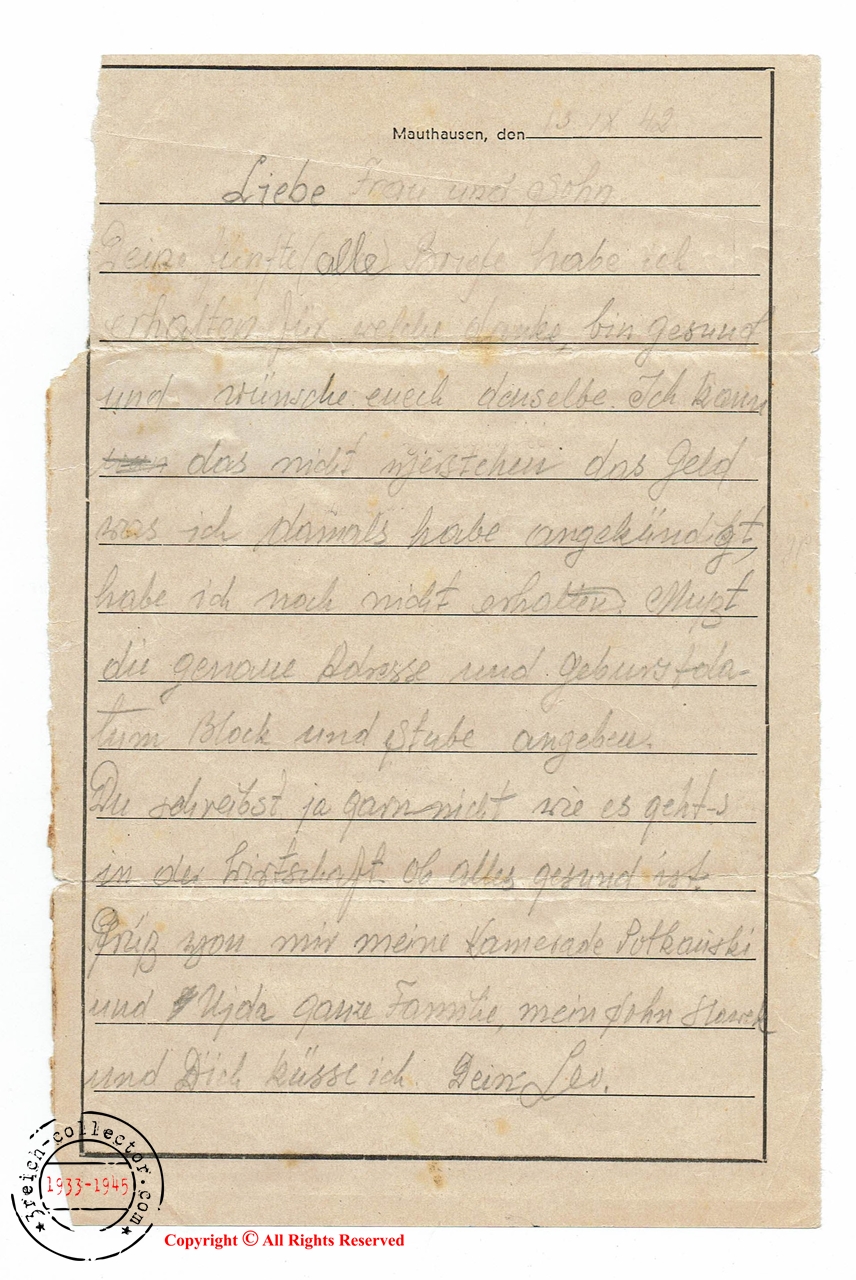 Mauthausen, den 15 IX 42
Liebe Frau und Sohn
Deine fünfte (alle) Briefe habe ich
erhalten für welche danke, bin gesund
und wünsche euech denselbe. Ich kann
das nicht wjerstehen das Geld
was ich damals habe angekündigt,
habe ich noch nicht erhalten. Mußt
die genaue Adresse und Geburstda-
tum Block und Stube angeben.
Du schreibst ja garnnicht wie es geht-s
in der Wirtschaft ob alles gesund ist.
Grüß won mir meine Kamerade Potkański
und Ujda ganze Familie, mein Sohn Slawek
und Dich küsse ich. Deine Leo.
3reich-collector.com
1933-1945
Copyright © All Rights Reserved